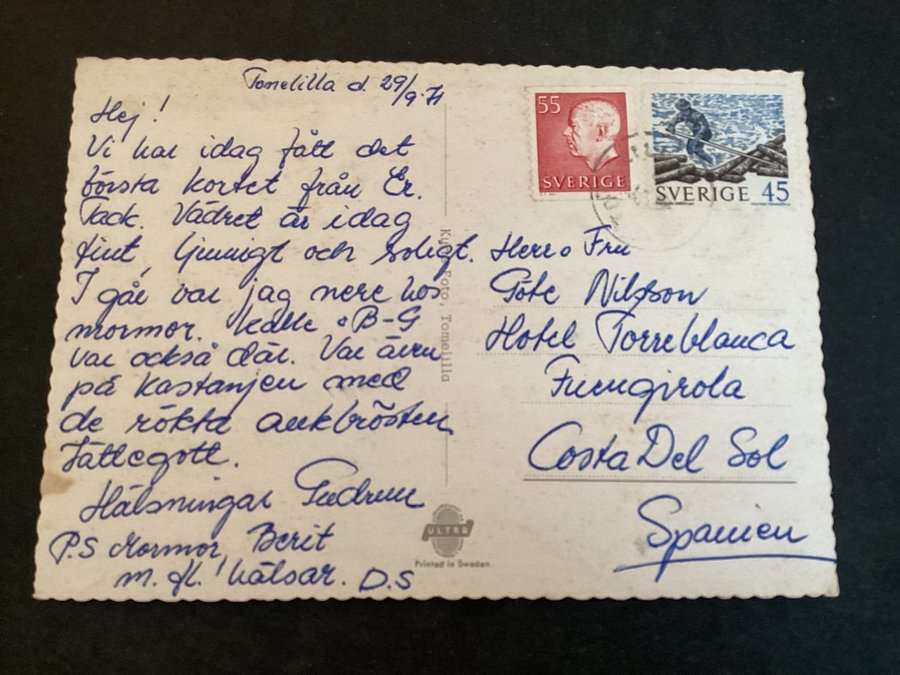 Tomelilla d. 29/9-71
Hej!
Vi har idag fått det
första kortet från Er.
Tack. Vädret är idag
fint, ljummigt och soligt.
I går var jag nere hos
mormor. Kalle o B-G
var också där. Var även
på Kastanjen med
de rökta ankbrösten
Jättegott.
Hälsningar Gudrun
P.S Mormor, Berit
m. fl. hälsar. D.S
Foto, Tomelilla
ULTRA
Printed in Sweden
55
SVERIGE
SVERIGE 45
Herr o Fru
Göte Nilsson
Hotel Torreblanca
Fuengirola
Costa Del Sol
Spanien